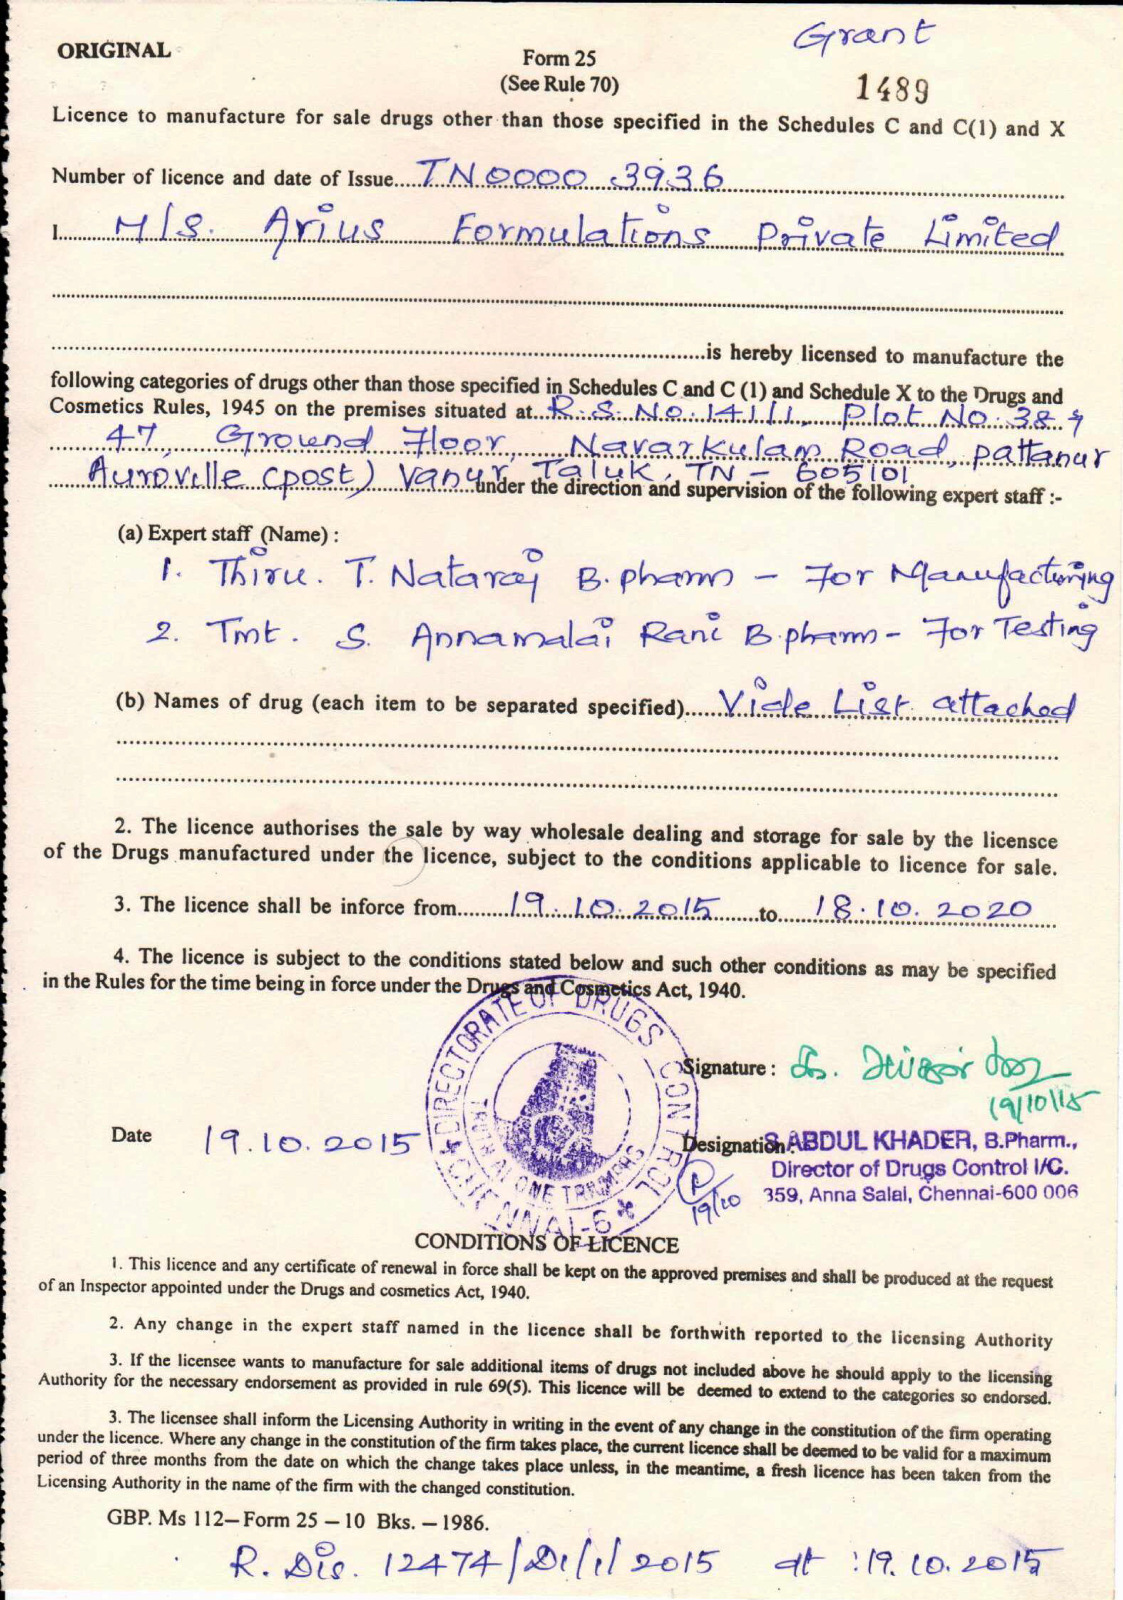 Grant
ORIGINAL
Form 25
(See Rule 70)
1489
Licence to manufacture for sale drugs other than those specified in the Schedules C and C(1) and X
Number of licence and date of Issue....TN0000 3936
1.....M/S. Arius Formulations Private Limited
is hereby licensed to manufacture the
following categories of drugs other than those specified in Schedules C and C (1) and Schedule X to the Drugs and
Cosmetics Rules, 1945 on the premises situated at...R.S.No.141/1, Plot No.38 &
47, Ground Floor, Navarkulam Road, pattanur
Auroville (post) Vanur, Taluk, TN - 605101
under the direction and supervision of the following expert staff :-
(a) Expert staff (Name) :
1. Thiru. T. Nataraj B.pharm - For Manufacturing
2. Tmt. S. Annamalai Rani B.pharm - For Testing
(b) Names of drug (each item to be separated specified).....Vide List attached
2. The licence authorises the sale by way wholesale dealing and storage for sale by the licensce
of the Drugs manufactured under the licence, subject to the conditions applicable to licence for sale.
3. The licence shall be inforce from........19.10.2015........to.....18.10.2020
4. The licence is subject to the conditions stated below and such other conditions as may be specified
in the Rules for the time being in force under the Drugs and Cosmetics Act, 1940.
DIRECTORATE OF DRUGS CONTROL
CHENNAI-6
TRUTH ALONE TRIUMPHS
Signature :
19/10/15
Date 19.10.2015
Designation :
S.ABDUL KHADER, B.Pharm.,
Director of Drugs Control I/C.
359, Anna Salai, Chennai-600 006
19/10
CONDITIONS OF LICENCE
1. This licence and any certificate of renewal in force shall be kept on the approved premises and shall be produced at the request
of an Inspector appointed under the Drugs and cosmetics Act, 1940.
2. Any change in the expert staff named in the licence shall be forthwith reported to the licensing Authority
3. If the licensee wants to manufacture for sale additional items of drugs not included above he should apply to the licensing
Authority for the necessary endorsement as provided in rule 69(5). This licence will be deemed to extend to the categories so endorsed.
3. The licensee shall inform the Licensing Authority in writing in the event of any change in the constitution of the firm operating
under the licence. Where any change in the constitution of the firm takes place, the current licence shall be deemed to be valid for a maximum
period of three months from the date on which the change takes place unless, in the meantime, a fresh licence has been taken from the
Licensing Authority in the name of the firm with the changed constitution.
GBP. Ms 112– Form 25 – 10 Bks. – 1986.
R. Dis. 12474/D1/1/2015 dt :19.10.2015